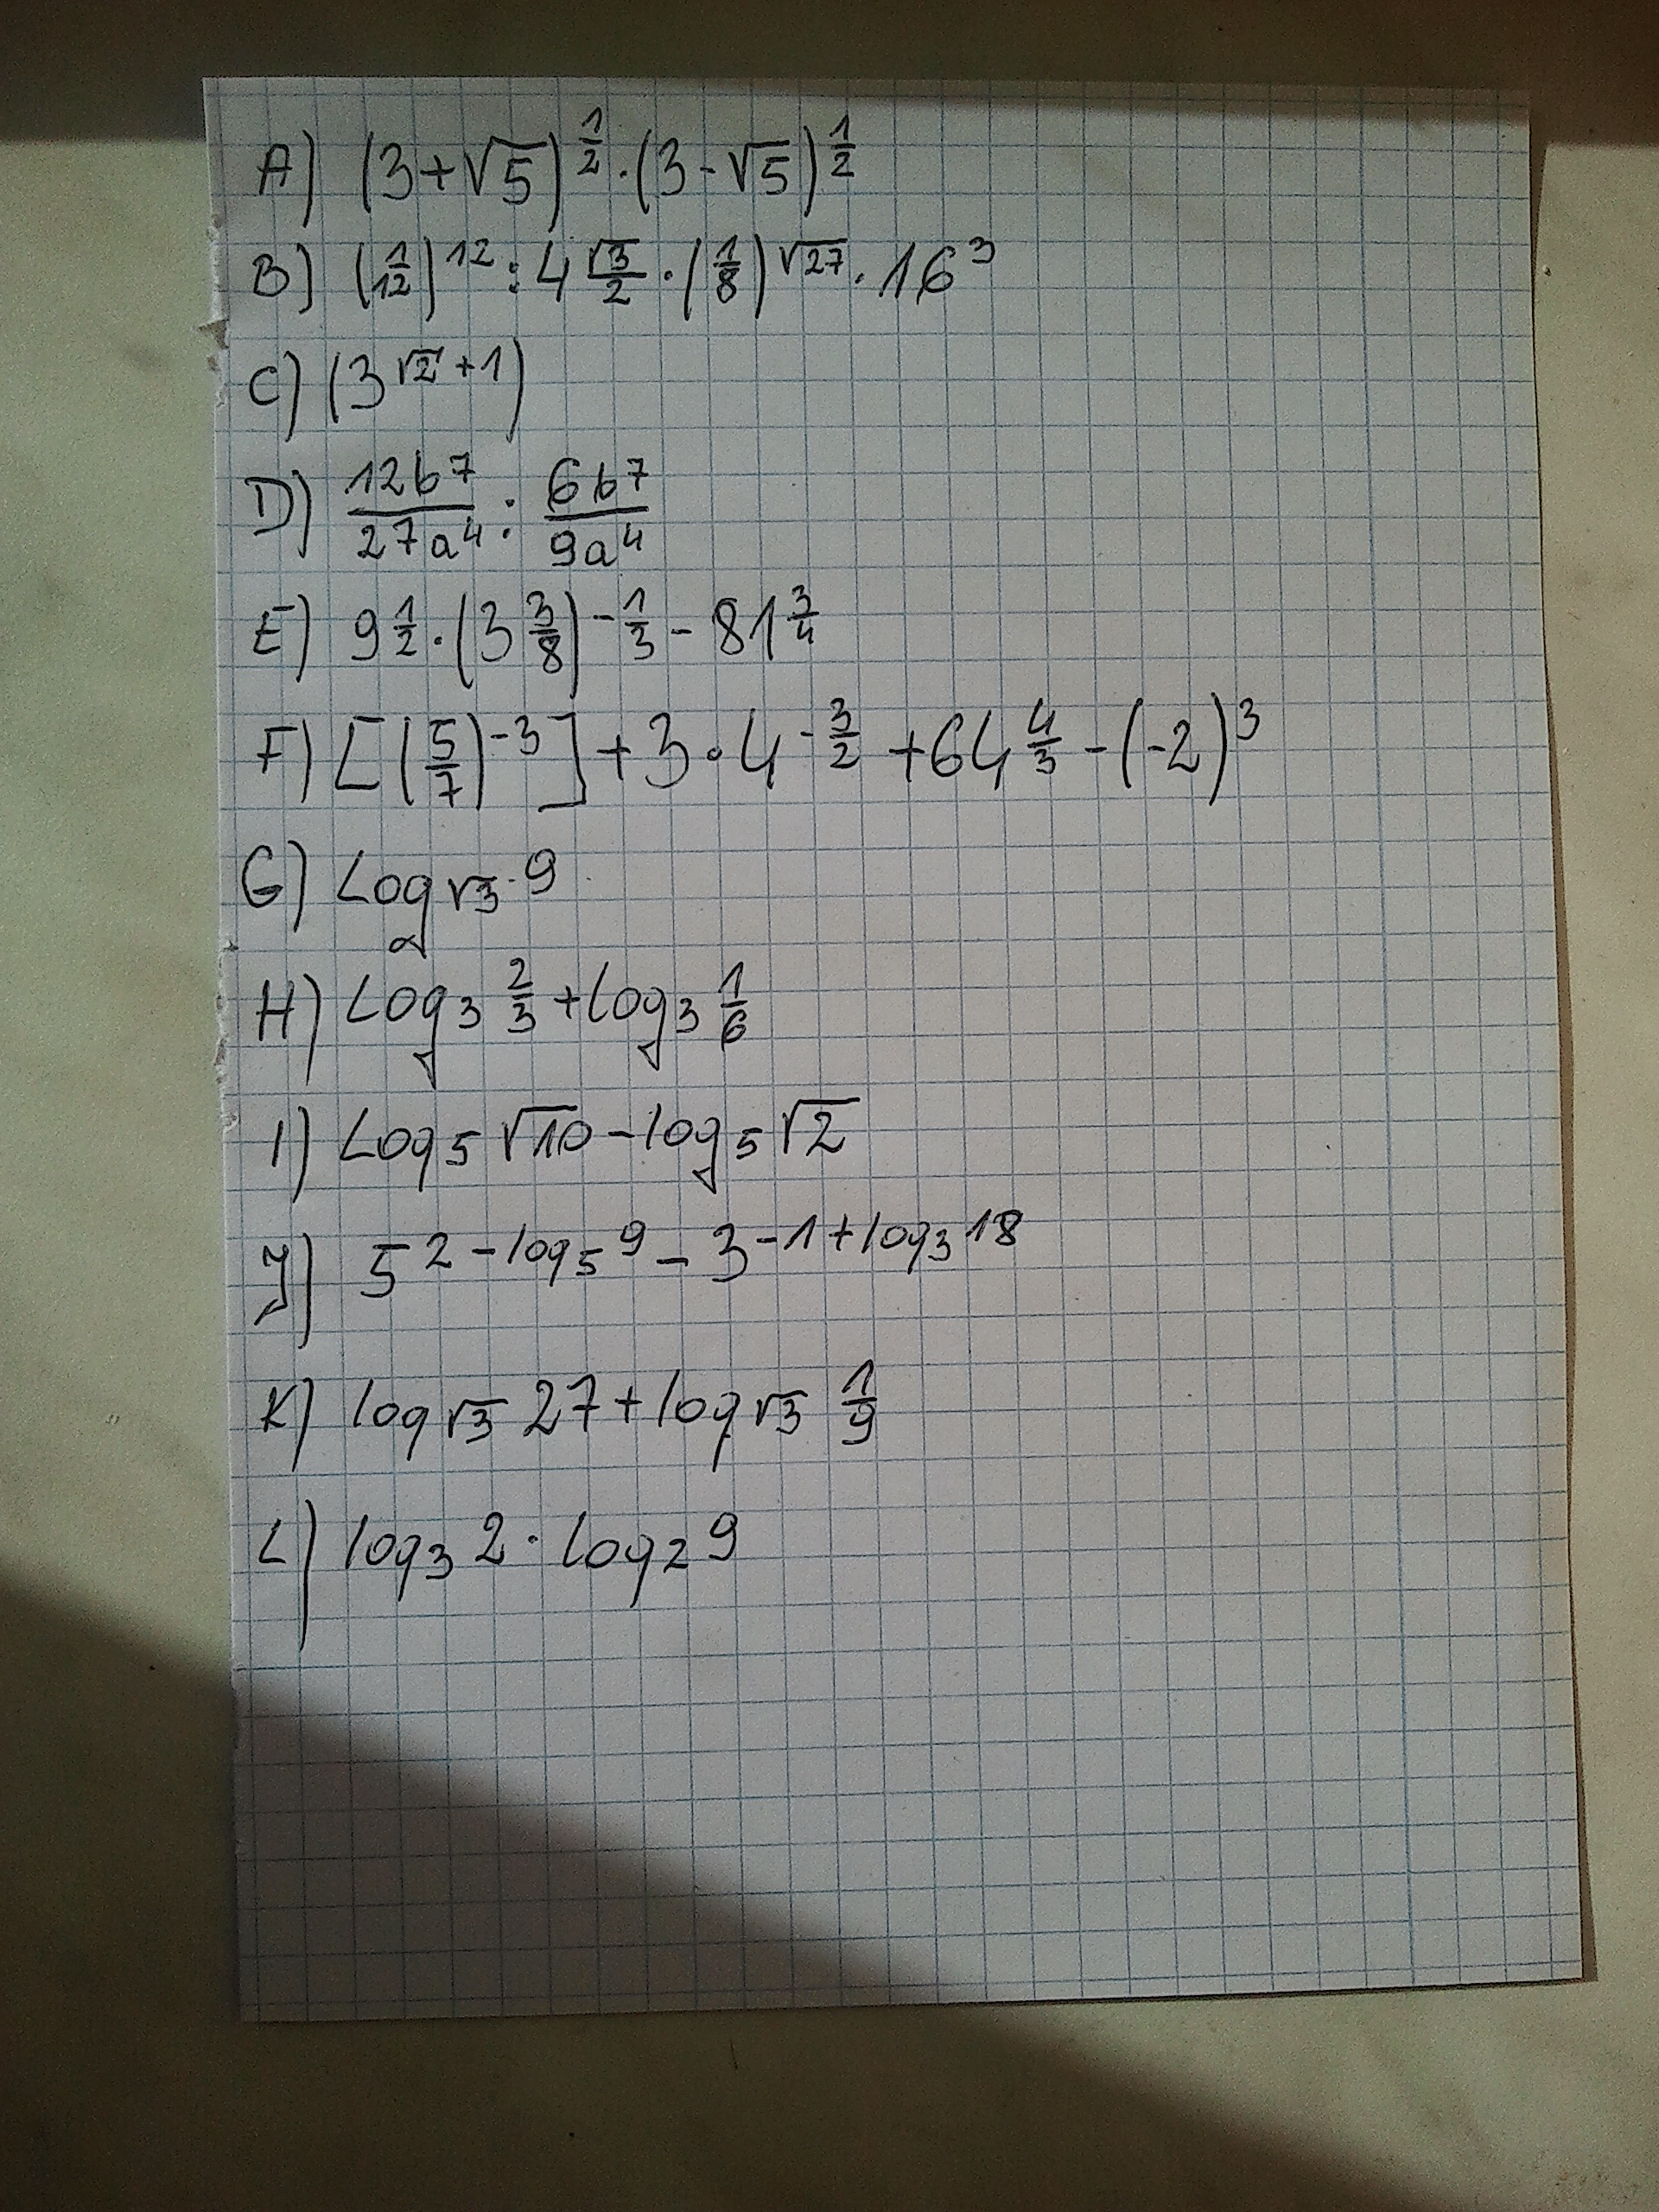 A) (3+√5)^(1/2) · (3-√5)^(1/2)
B) (1/12)^12 : 4^(√3/2) · (1/8)^√27 · 16^3
C) (3^(√2+1))
D) 12b^7/27a^4 : 6b^7/9a^4
E) 9^(1/2) · (3 3/8)^(-1/3) - 81^(3/4)
F) [(5/7)^-3] + 3 · 4^(-3/2) + 64^(4/3) - (-2)^3
G) Log_√3 9
H) Log_3 2/3 + log_3 1/6
I) Log_5 √10 - log_5 √2
J) 5^(2-log_5 9) - 3^(-1+log_3 18)
K) log_√3 27 + log_√3 1/9
L) log_3 2 · log_2 9